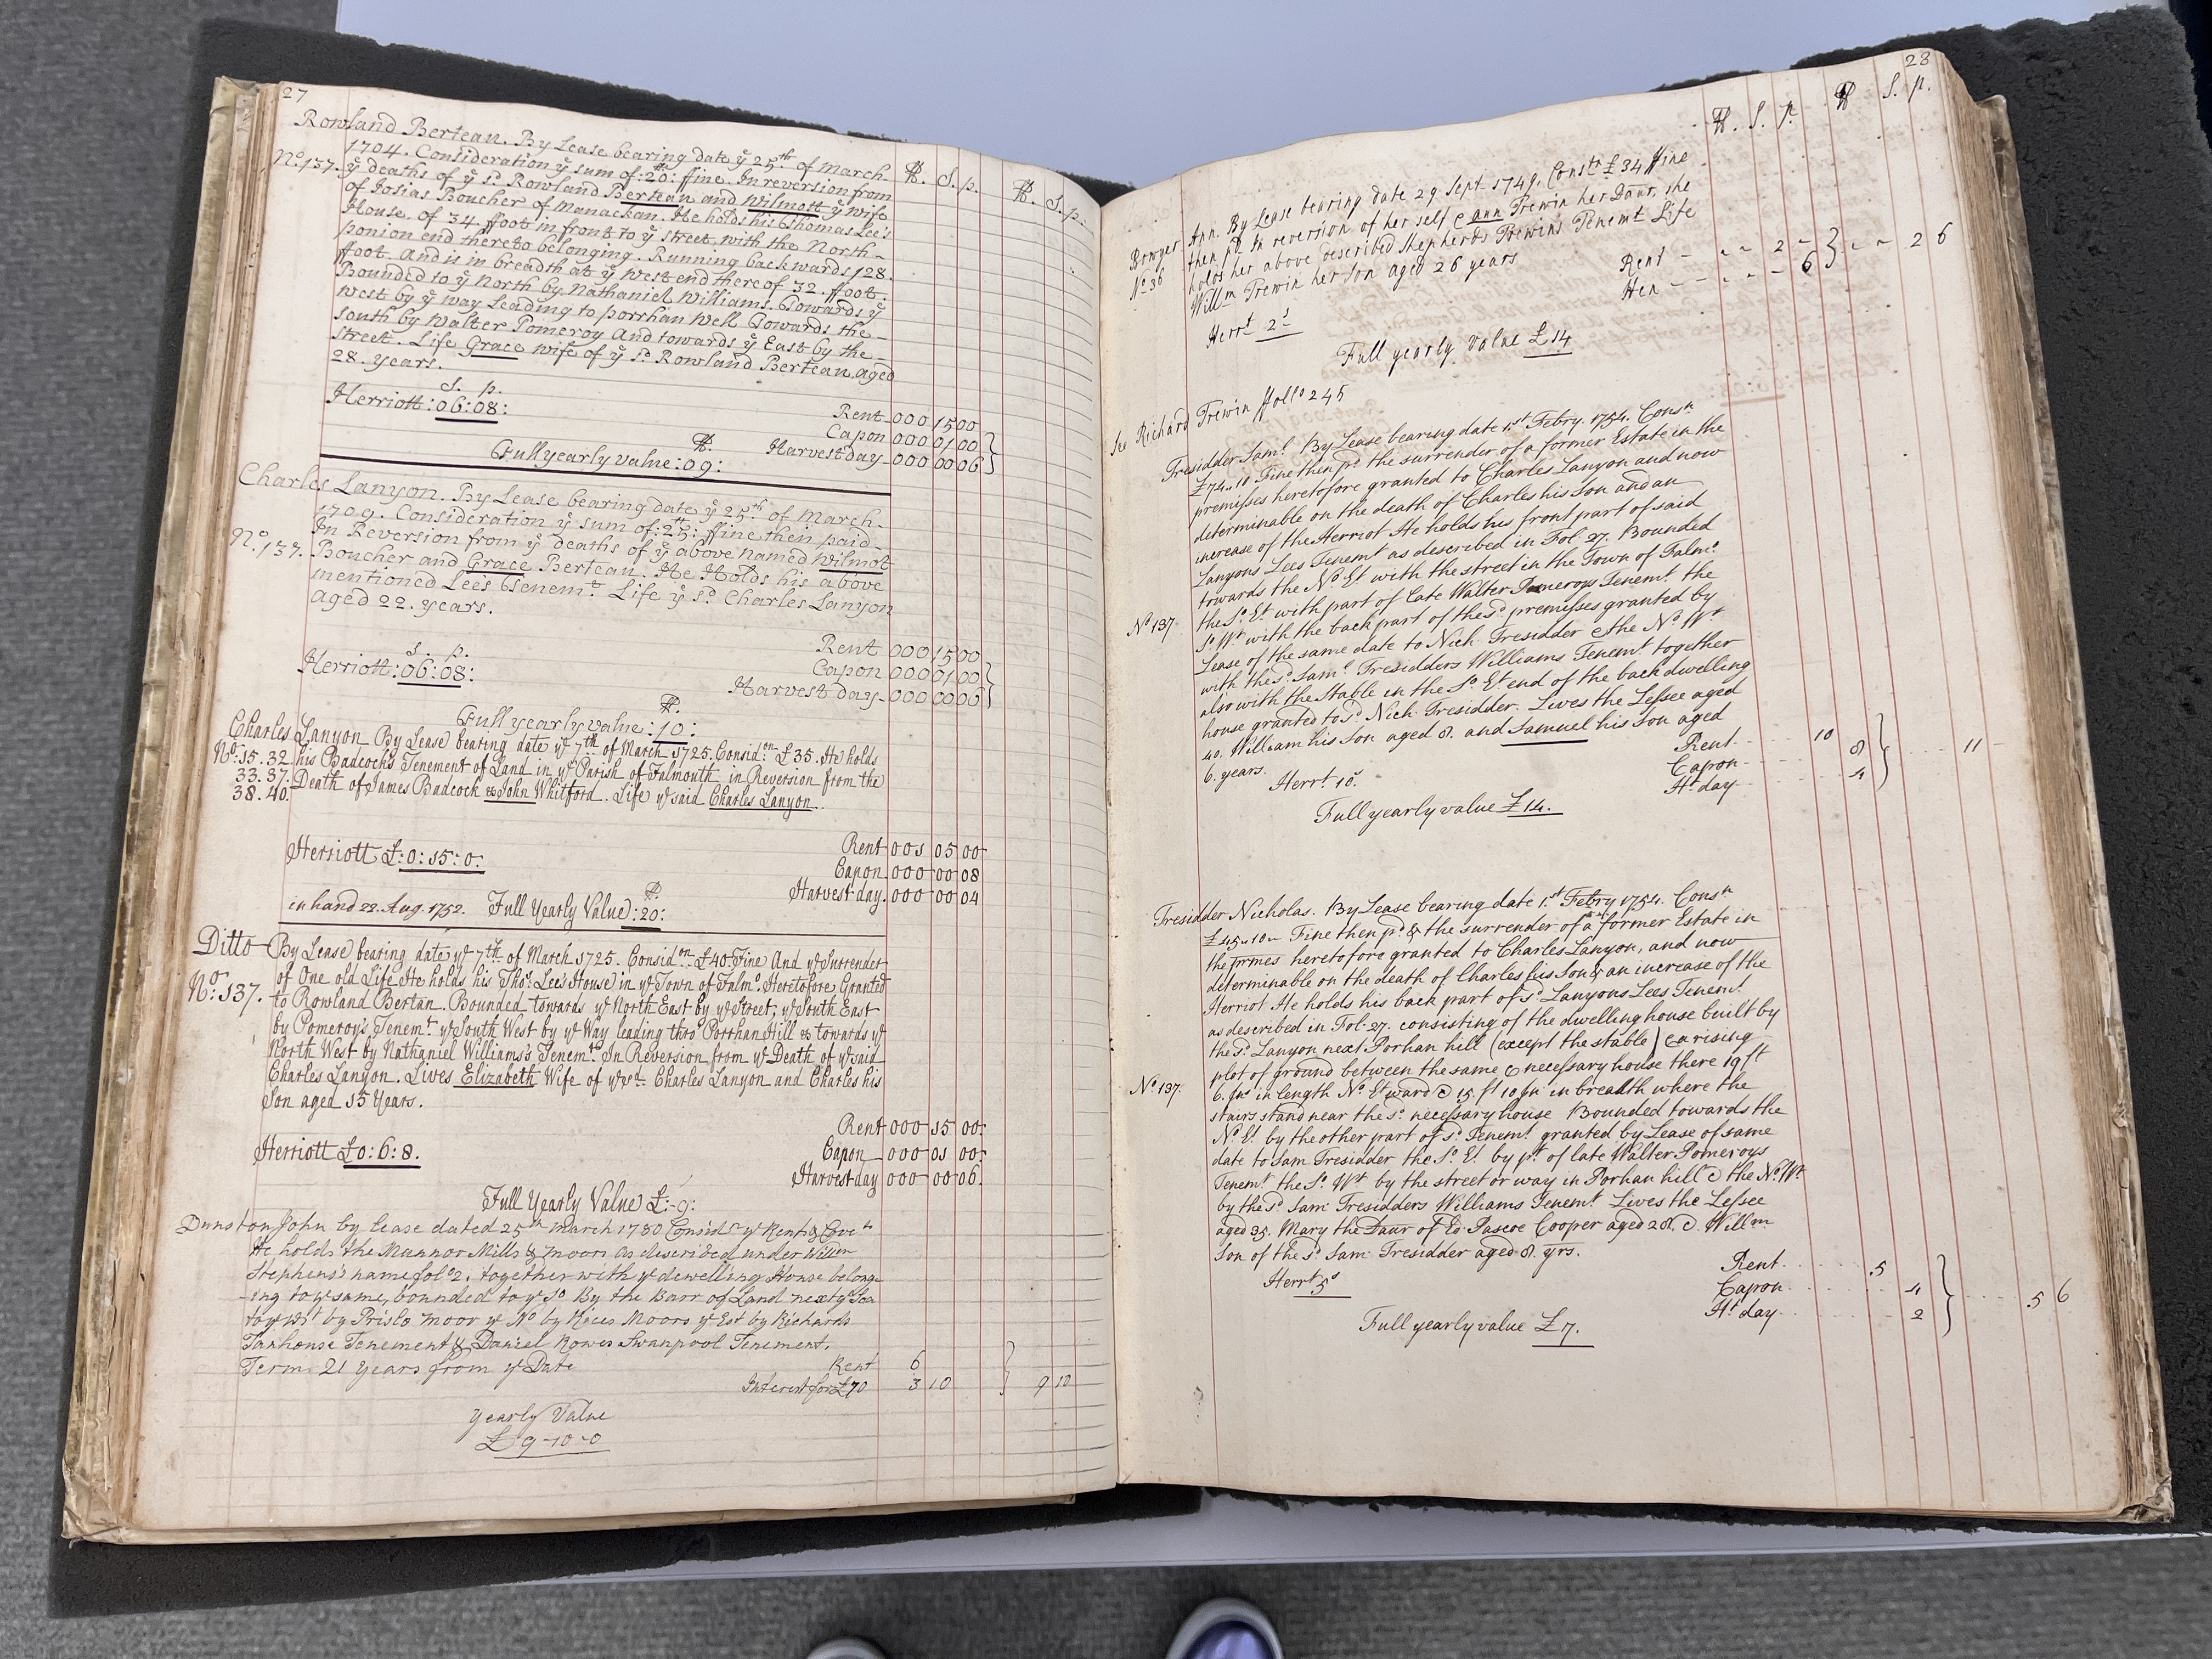 27
Rowland Berteau. By Lease bearing date ye 25th of March
1704. Consideration ye sum of :20: ffine. In reversion from
No. 137. ye deaths of ye sd. Rowland Berteau and Wilmott ye wife
of Josias Boucher of Manackan. He holds his Thomas Lee's
House. of 34 ffoot in front to ye street with the North-
ponion end thereto belonging. Running backwards 128.
ffoot. And is in breadth at ye West end there of 32. ffoot:
Bounded to ye North by Nathaniel Williams. Towards ye
West by ye way Leading to porrhan Well Towards the
south by Walter Pomeroy And towards ye East by the
street. Life Grace wife of ye sd. Rowland Berteau aged
28. years.
S. p.
Herriott :06:08:
Rent 000 15 00
Capon 000 01 00
Harvest day 000 00 06
Full yearly value :09:
Charles Lanyon. By Lease bearing date ye 25th of March
1709. Consideration ye sum of :25: ffine then paid
In Reversion from ye deaths of ye above named Wilmot
No. 137. Boucher and Grace Berteau. He Holds his above
mentioned Lee's Tenemt. Life ye sd. Charles Lanyon
aged 22. years.
S. p.
Herriott :06:08:
Rent 000 15 00
Capon 000 01 00
Harvest day 000 00 06
Full yearly value :10:
Charles Lanyon By Lease bearing date ye 7th of March 1725. Considon. £35. He holds
No: 15. 32 his Badcock's Tenement of Land in ye Parish of Falmouth in Reversion from the
33. 37. Death of James Badcock & John Whitford. Life ye said Charles Lanyon.
38. 40.
Herriott £:0:15:0:
Rent 001 05 00
Capon 000 00 08
Harvest day. 000 00 04
in hand 22. Aug. 1752. Full Yearly Value :20:
Ditto By Lease bearing date ye 7th of March 1725. Considon £40 Fine And ye Surrender
of One old Life He holds his Thos: Lee's House in ye Town of Falmo. Heretofore Granted
No: 137. to Rowland Bertan. Bounded towards ye North East by ye Street; ye South East
by Pomeroy's Tenemt. ye South West by ye Way leading thro' Porrhan Hill & towards ye
North West by Nathaniel Williams's Tenemt. In Reversion from ye Death of ye said
Charles Lanyon. Lives Elizabeth Wife of ye sd. Charles Lanyon and Charles his
Son aged 15 Years.
Rent 000 15 00:
Herriott £0:6:8.
Capon 000 01 00:
Harvest day 000 00 06.
Full Yearly Value £:9:
Dunston John by Lease dated 25th March 1780 Considn ye Rents & Covts
He holds the Mannor Mills & moors as described under Willm
Stephens's name folo 2. together with ye dewelling House belong-
-ing to ye same, bounded to ye So By the Barr of Land next ye Sea
to ye Wt by Prislo moor ye No by Hices Moors ye Est by Richards
Tanhouse Tenement & Daniel Rowes Swanpool Tenement.
Term 21 Years from ye Date
Rent 6
Interest for £70 3 10 } 9 10
yearly Value
£9-10-0
28
S. p. S. p.
Bowyer Ann. By Lease bearing date 29 Sept. 1749. Consts £34 ffine
then pd. In reversion of her self & ann Trewin her Daur, she
No 36 holds her above described Shepherds Trewins Tenemt Life
Willm Trewin her Son aged 26 years
Rent - 2 -
Hen - - 6 } - 2 6
Herrt 2s
Full yearly Value £14
See Richard Trewin ffollo 245
Tresidder Saml. By Lease bearing date 1st Febry. 1754. Consn
£74..10 Fine then pd. the surrender of a former Estate in the
premisses heretofore granted to Charles Lanyon and now
determinable on the death of Charles his Son and an
increase of the Herriot He holds his front part of said
Lanyons Lees Tenemt as described in Fol. 27. Bounded
towards the No. Et with the street in the Town of Falmo.
the So. Et with part of late Walter Pomeroys Tenemt. the
No 137. So. Wt with the back part of the sd premisses granted by
Lease of the same date to Nich. Tresidder & the No. Wt
with the sd Saml. Tresidders Williams Tenemt together
also with the Stable in the So. Et end of the back dwelling
house granted to sd Nich. Tresidder. Lives the Lessee aged
40. William his Son aged 8. and Samuel his Son aged
6. years.
Rent 10
Capon 8
Ht day 4 } 11 -
Herrt. 10s
Full yearly value £14.
Tresidder Nicholas. By Lease bearing date 1st Febry 1754. Consn
£45..10- Fine then pd & the surrender of a former Estate in
the prmes heretofore granted to Charles Lanyon, and now
determinable on the death of Charles his Son & an increase of the
Herriot He holds his back part of sd Lanyons Lees Tenemt
as described in Fol. 27. consisting of the dwelling house built by
the sd Lanyon next Porhan hill (except the stable) & a rising
plot of ground between the same & necessary house there 19 ft
No 137. 6. Ins in length No. Et ward & 15. ft 10 In in breadth where the
stairs stand near the sd necessary house Bounded towards the
No. Et. by the other part of sd Tenemt granted by Lease of same
date to Sam Tresidder the So. Et. by pt. of late Walter Pomeroys
Tenemt the So. Wt by the street or way in Porhan hill & the No. Wt.
by the sd Sam: Tresidders Williams Tenemt Lives the Lessee
aged 35. Mary the Daur of Ed. Pascoe Cooper aged 28. & Willm
Son of the sd Sam: Tresidder aged 8. yrs.
Herrt 5s
Rent 5
Capon 4
Ht day 2 } 5 6
Full yearly value £7.